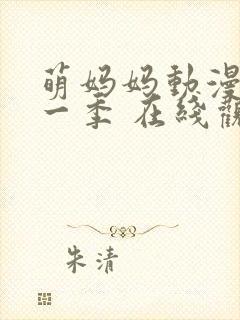 萌妈妈動漫
一季 在线觀
朱清